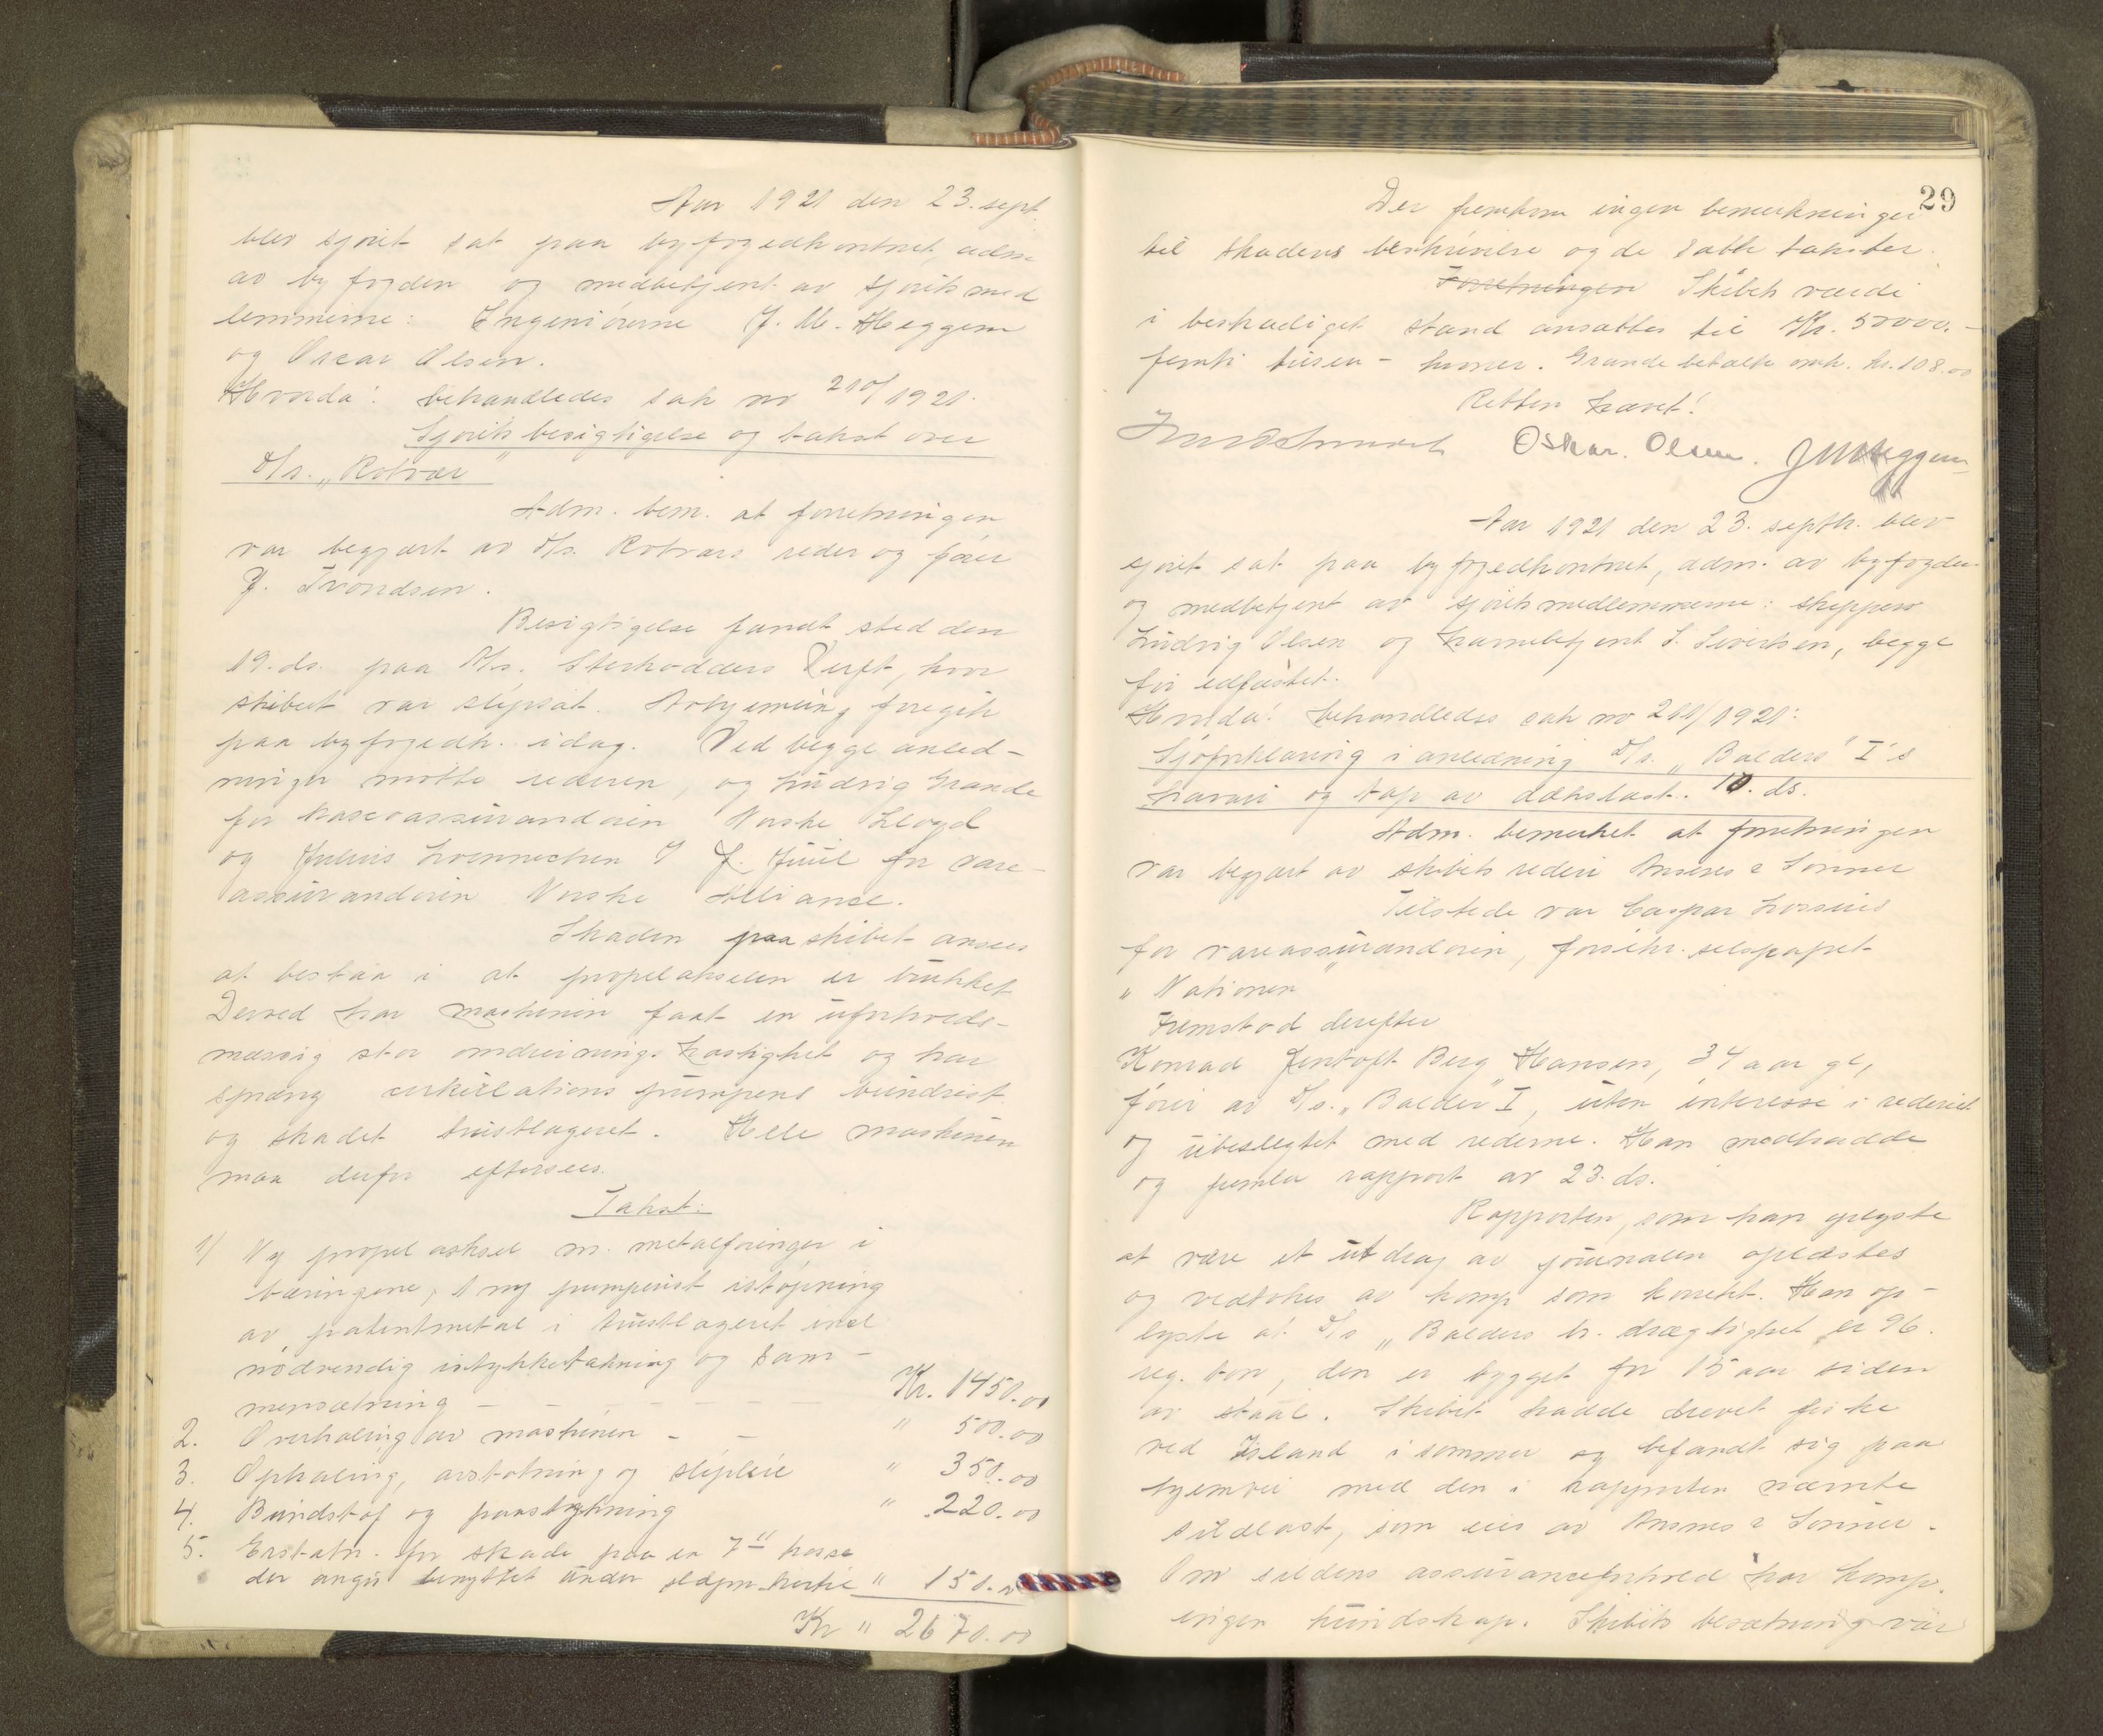 Aar 1921 den 23. sept.
blev sjöret sat paa byfogedkontoret, adm.
av byfogden og medbetjent av sjörets med
lemmerne: Ingeniörerne J. M. Heggem
og Oscar Olsen.
Hvorda: behandledes sak no 210/1921.
Sjörets besigtigelse og takst over
D/s. „Rotvær"
Adm. bem. at forretningen
var begjært av D/s. Rotværs reder og förer
J. Trondsen.
Besigtigelse fandt sted den
19. ds. paa M/s. Storkodders Verft, hvor
skibet var slipsat. Avhjemling foregik
paa byfogedk. idag. Ved begge anled-
ninger mötte rederen, og Ludvig Grande
for kascoassurandören Norske Lloyd
og Julius Loennechen J. Juul for vare-
assurandören Norske Alliance.
Skaden paa skibet ansees
at bestaa i at propelakselen er brukket
Derved har maskinen faat en uforholds-
mæssig stor omdreinings hastighet og har
sprængt cirkulations pumpens bundrist
og skadet trustlageret. Hele maskinen
maa derfor eftersees.
Takst:
1/ Ny propel aksel m. metalforinger i
bæringene, 1 ny pumperist istöpning
av patentmetal i trustlageret incl
nödvendig istykketakning og sam-
mensætning - - - - - - Kr. 1450.00
2. Overhaling av maskinen - - " 500.00
3. Ophaling, avsætning og slipleie " 350.00
4. Bundstof og paastrykning " 220.00
5. Erstatn. for skade paa en 7" trosse
der angis benyttet under slæpn. " 150.00
Kr " 2670.00
29
Der fremkom ingen bemerkninger
til skadens beskrivelse og de satte takster.
Forretningen Skibets værdi
i beskadiget stand ansattes til Kr. 50000.-
femti tusen - kroner. Grande betalte omk. kr. 108.00
Retten hævet!
Oskar. Olsen. J M Heggem
Aar 1921 den 23. septbr. blev
sjöret sat paa byfogedkontoret, adm. av byfogden
og medbetjent av sjörets medlemmerne: skippers
Ludvig Olsen og havnebetjent S. Sivertsen, begge
för edfæstet.
Hvorda: behandledes sak no 211/1921:
Sjöforklaring i anledning D/s. „Balders" I's
havari og tap av dækslast. 10. ds.
Adm. bemerket at forretningen
var begjært av skibets rederi Ansnes & Sönner
Tilstede var Caspar Lossius
for vareassurandören, forsikr. selskapet
„Nationen"
Fremstod derefter
Konrad Jentoft Berg Hansen, 34 aar gl,
förer av D/s. „Balder" I, uten interesse i rederiet
og ubeslegtet med rederne. Han medhadde
og fremla rapport av 23. ds.
Rapporten, som han oplyste
at være et utdrag av journalen oplæstes
og vedtokes av komp. som korrekt. Han op-
lyste at D/s „Balders br. drægtighet er 96.
reg. ton, den er bygget for 15 aar siden
av staal. Skibet hadde drevet fiske
ved Island i sommer og befandt sig paa
hjemvei med den i rapporten nævnte
sildelast, som eies av Ansnes & Sönner.
Om sildens assuranceforhold har komp.
ingen kundskap. Skibets besætning var